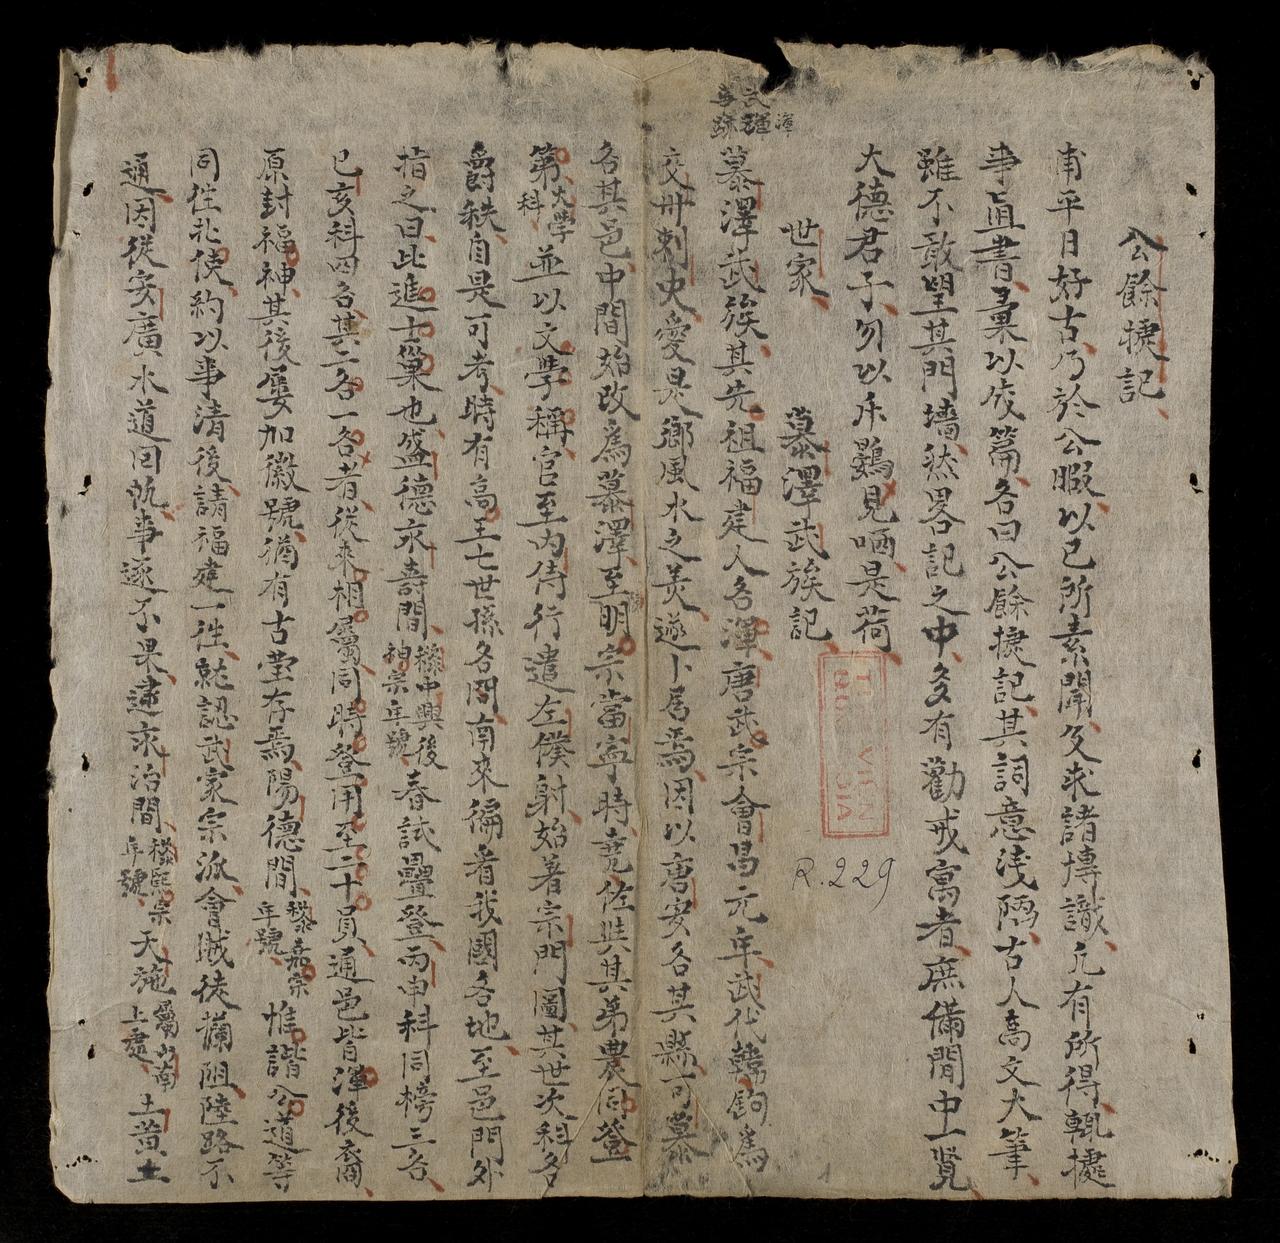 公餘捷記
南平日好古乃於公暇以己所素聞及求諸博識凡有所得輒援
事直書彙以成篇名曰公餘捷記其詞意淺陋古人高文大筆
雖不敢望其門墻然畧記之中多有勸戒寓者庶備閒中一覽
大德君子勿以斥鷃見哂是荷
世家 慕澤武族記
慕澤武族其先祖福建人名渾唐武宗會昌元年武代韓鉤爲
交州刺史愛是鄉風水之美遂卜居焉因以唐安名其縣可慕
名其邑中間始改爲慕澤至明宗當寧時堯佐與其弟農同登
第大學科並以文學稱官至內侍行遣左僕射始著宗門圖其世次科名
爵秩自是可考時有高王七世孫名問南來徧看我國各地至邑門外
指之曰此進士巢也盛德永壽間黎中興後神宗年號春試疊登丙申科同榜三名
己亥科四名其二名一名者從來相屬同時登用至二十員通邑皆渾後裔
原封福神其後屢加徽號猶有古堂存焉陽德間黎嘉宗年號惟諧公道等
同往北使約以事清後請福建一往就認武家宗派會賊徒攔阻陸路不
通因從安廣水道回帆事遂不果逮永治間黎熙宗年號天施屬山南上處土黃土
武渾
事跡
R.229